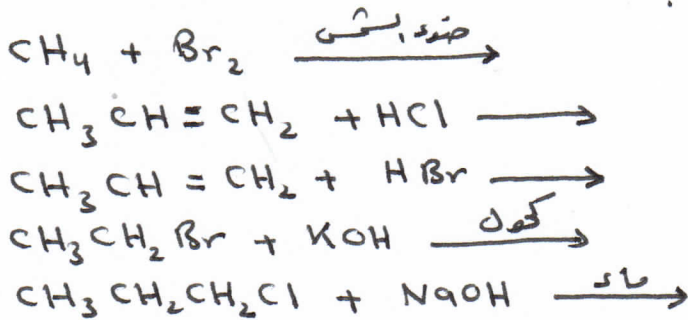 CH₄ + Br₂ ضوء الشمس →
CH₃CH≡CH₂ + HCl →
CH₃CH=CH₂ + HBr →
CH₃CH₂Br + KOH كحول →
CH₃CH₂CH₂Cl + NaOH ماء →